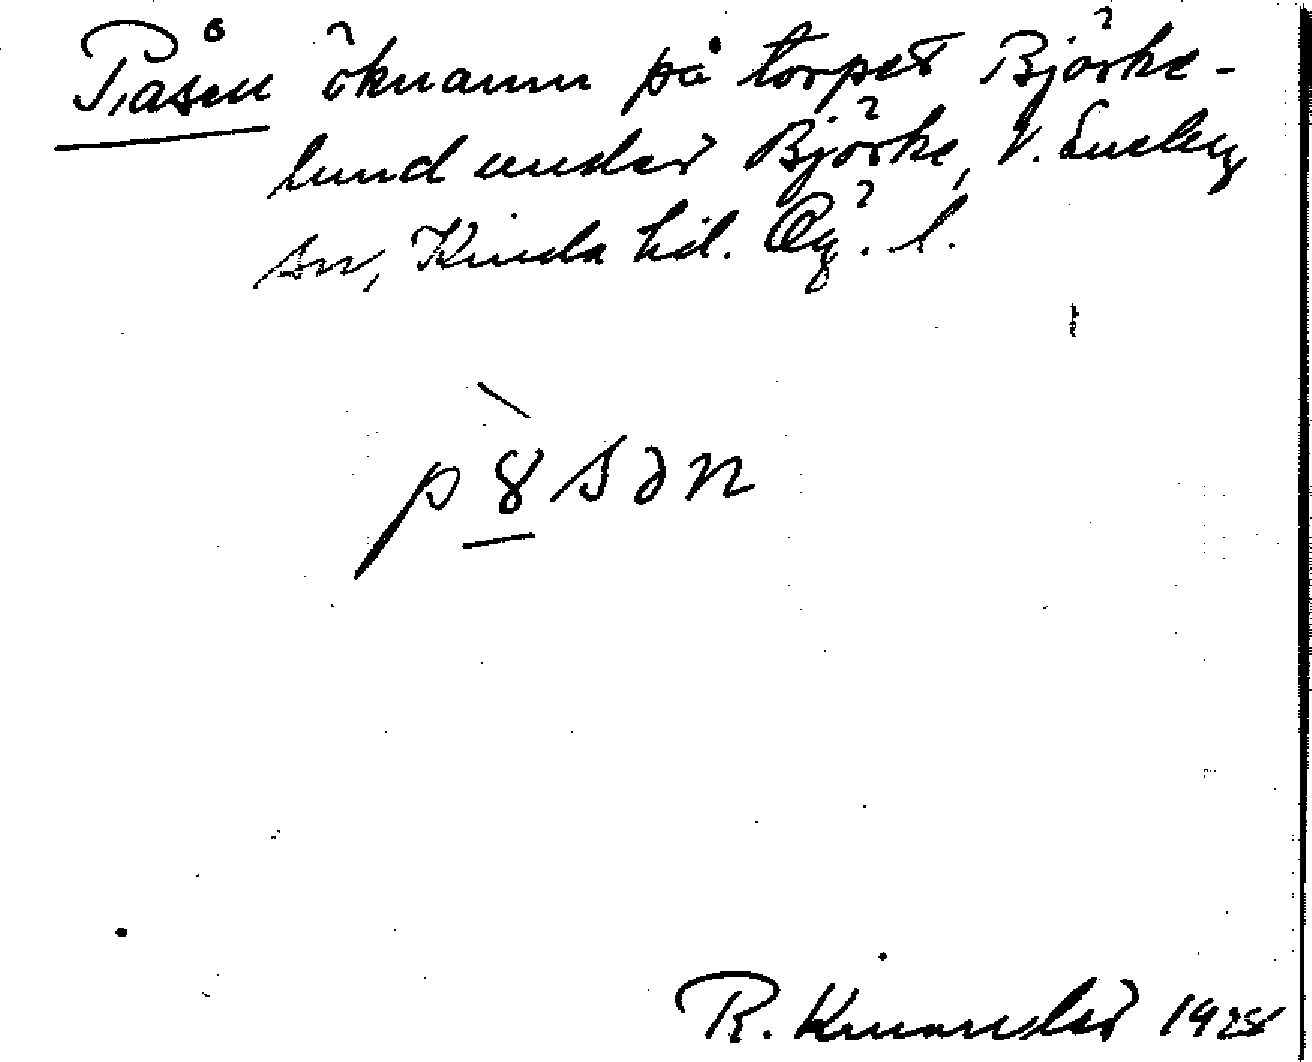 Påsen öknamn på torpet Björke-
lund under Björke, V. Eneby
sn, Kinda hd. Ög. l.
p8sən
R. Kinander 1928